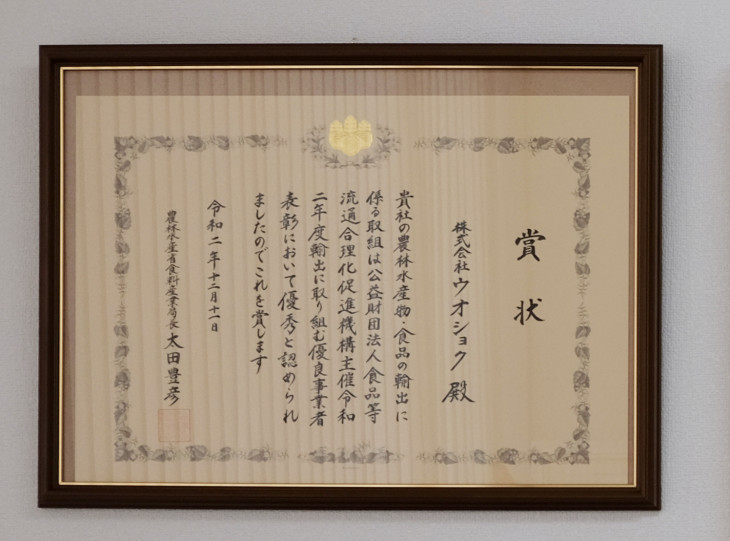 賞状
株式会社ウオショク 殿
貴社の農林水産物・食品の輸出に
係る取組は公益財団法人食品等
流通合理化促進機構主催令和
二年度輸出に取り組む優良事業者
表彰において優秀と認められ
ましたのでこれを賞します
令和二年十二月十一日
農林水産省食料産業局長 太田豊彦